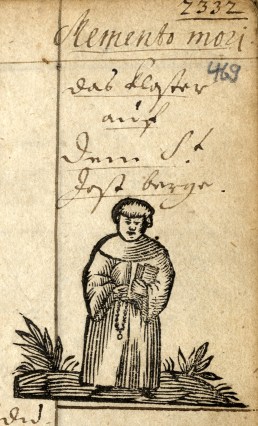 2332
Memento mori
469
das kloster
auf
dem St
Jost berge.